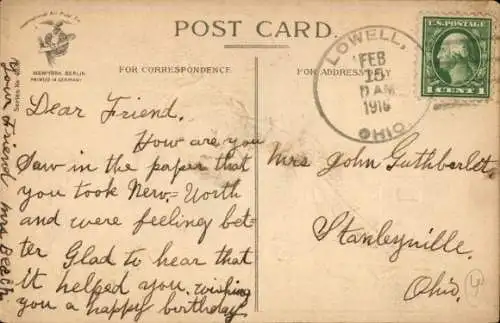 International Art Publ. Co.
NEW-YORK. BERLIN
PRINTED IN GERMANY
Series No.
POST CARD.
FOR CORRESPONDENCE
FOR ADDRESS
LOWELL,
FEB
15
11 AM
1916
OHIO.
U.S. POSTAGE
1 CENT 1
Dear Friend.
How are you
Saw in the paper that
you took Nerv-Worth
and were feeling bet-
ter Glad to hear that
It helped you. wishing
you a happy birthday
Your Friend Mrs Beach
Mrs John Guthberlet
Stanleyville.
Ohio.